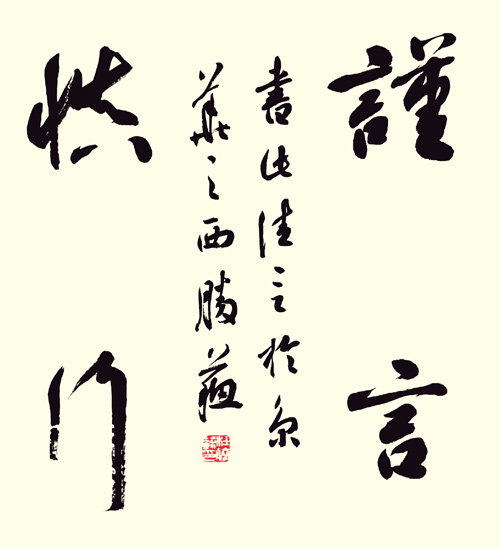 謹言
慎行
書此佳言於京
華之西勝